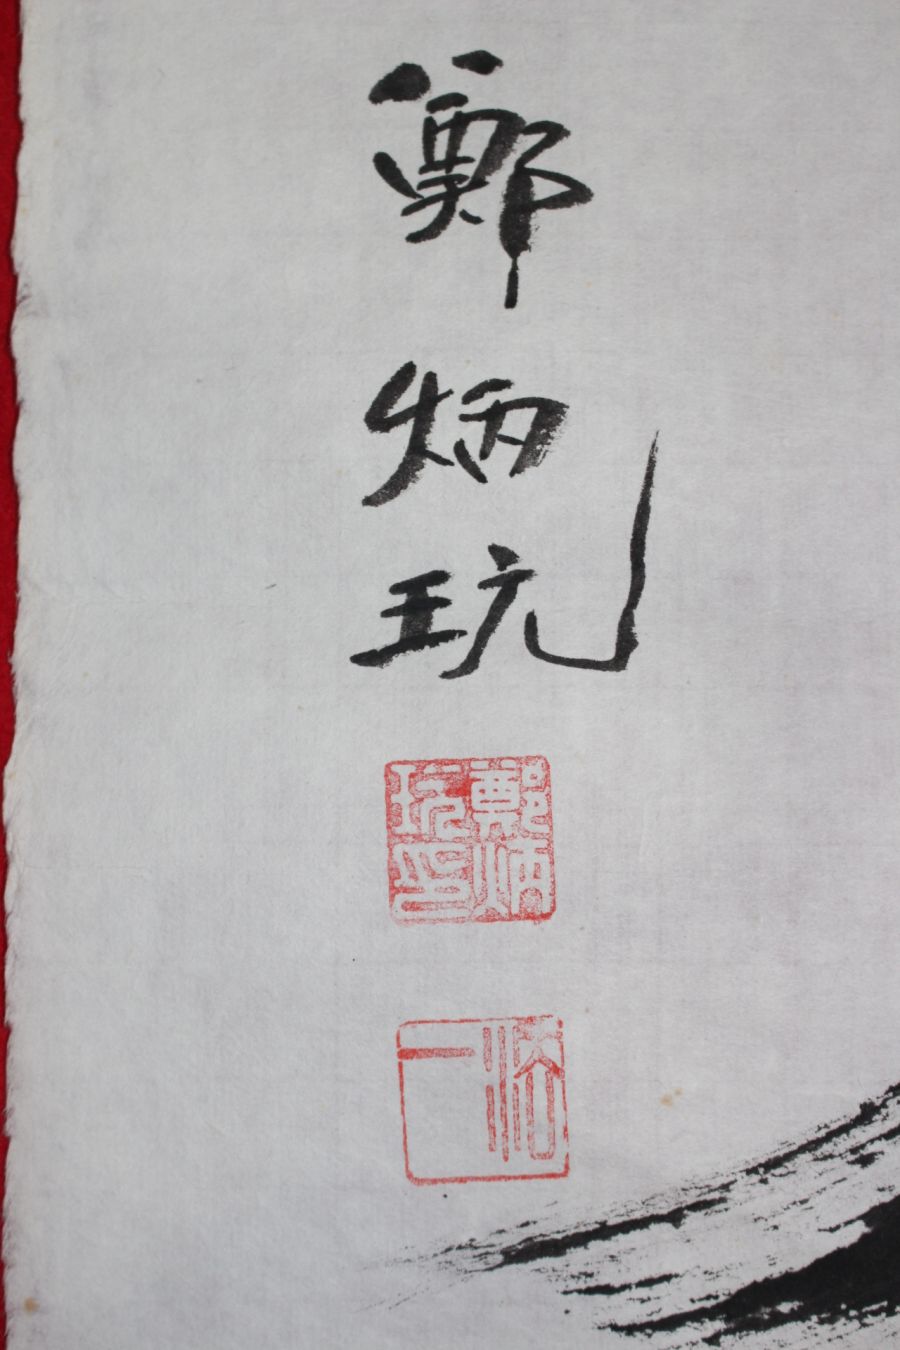 鄭炳玩
鄭炳
玩印
一